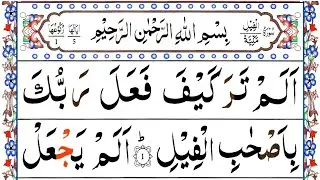 سورة الفيل مكية بِسْمِ اللهِ الرَّحْمٰنِ الرَّحِيْمِ
اَلَمْ تَرَ كَيْفَ فَعَلَ رَبُّكَ
بِاَصْحٰبِ الْفِيْلِ ۱ اَلَمْ يَجْعَلْ